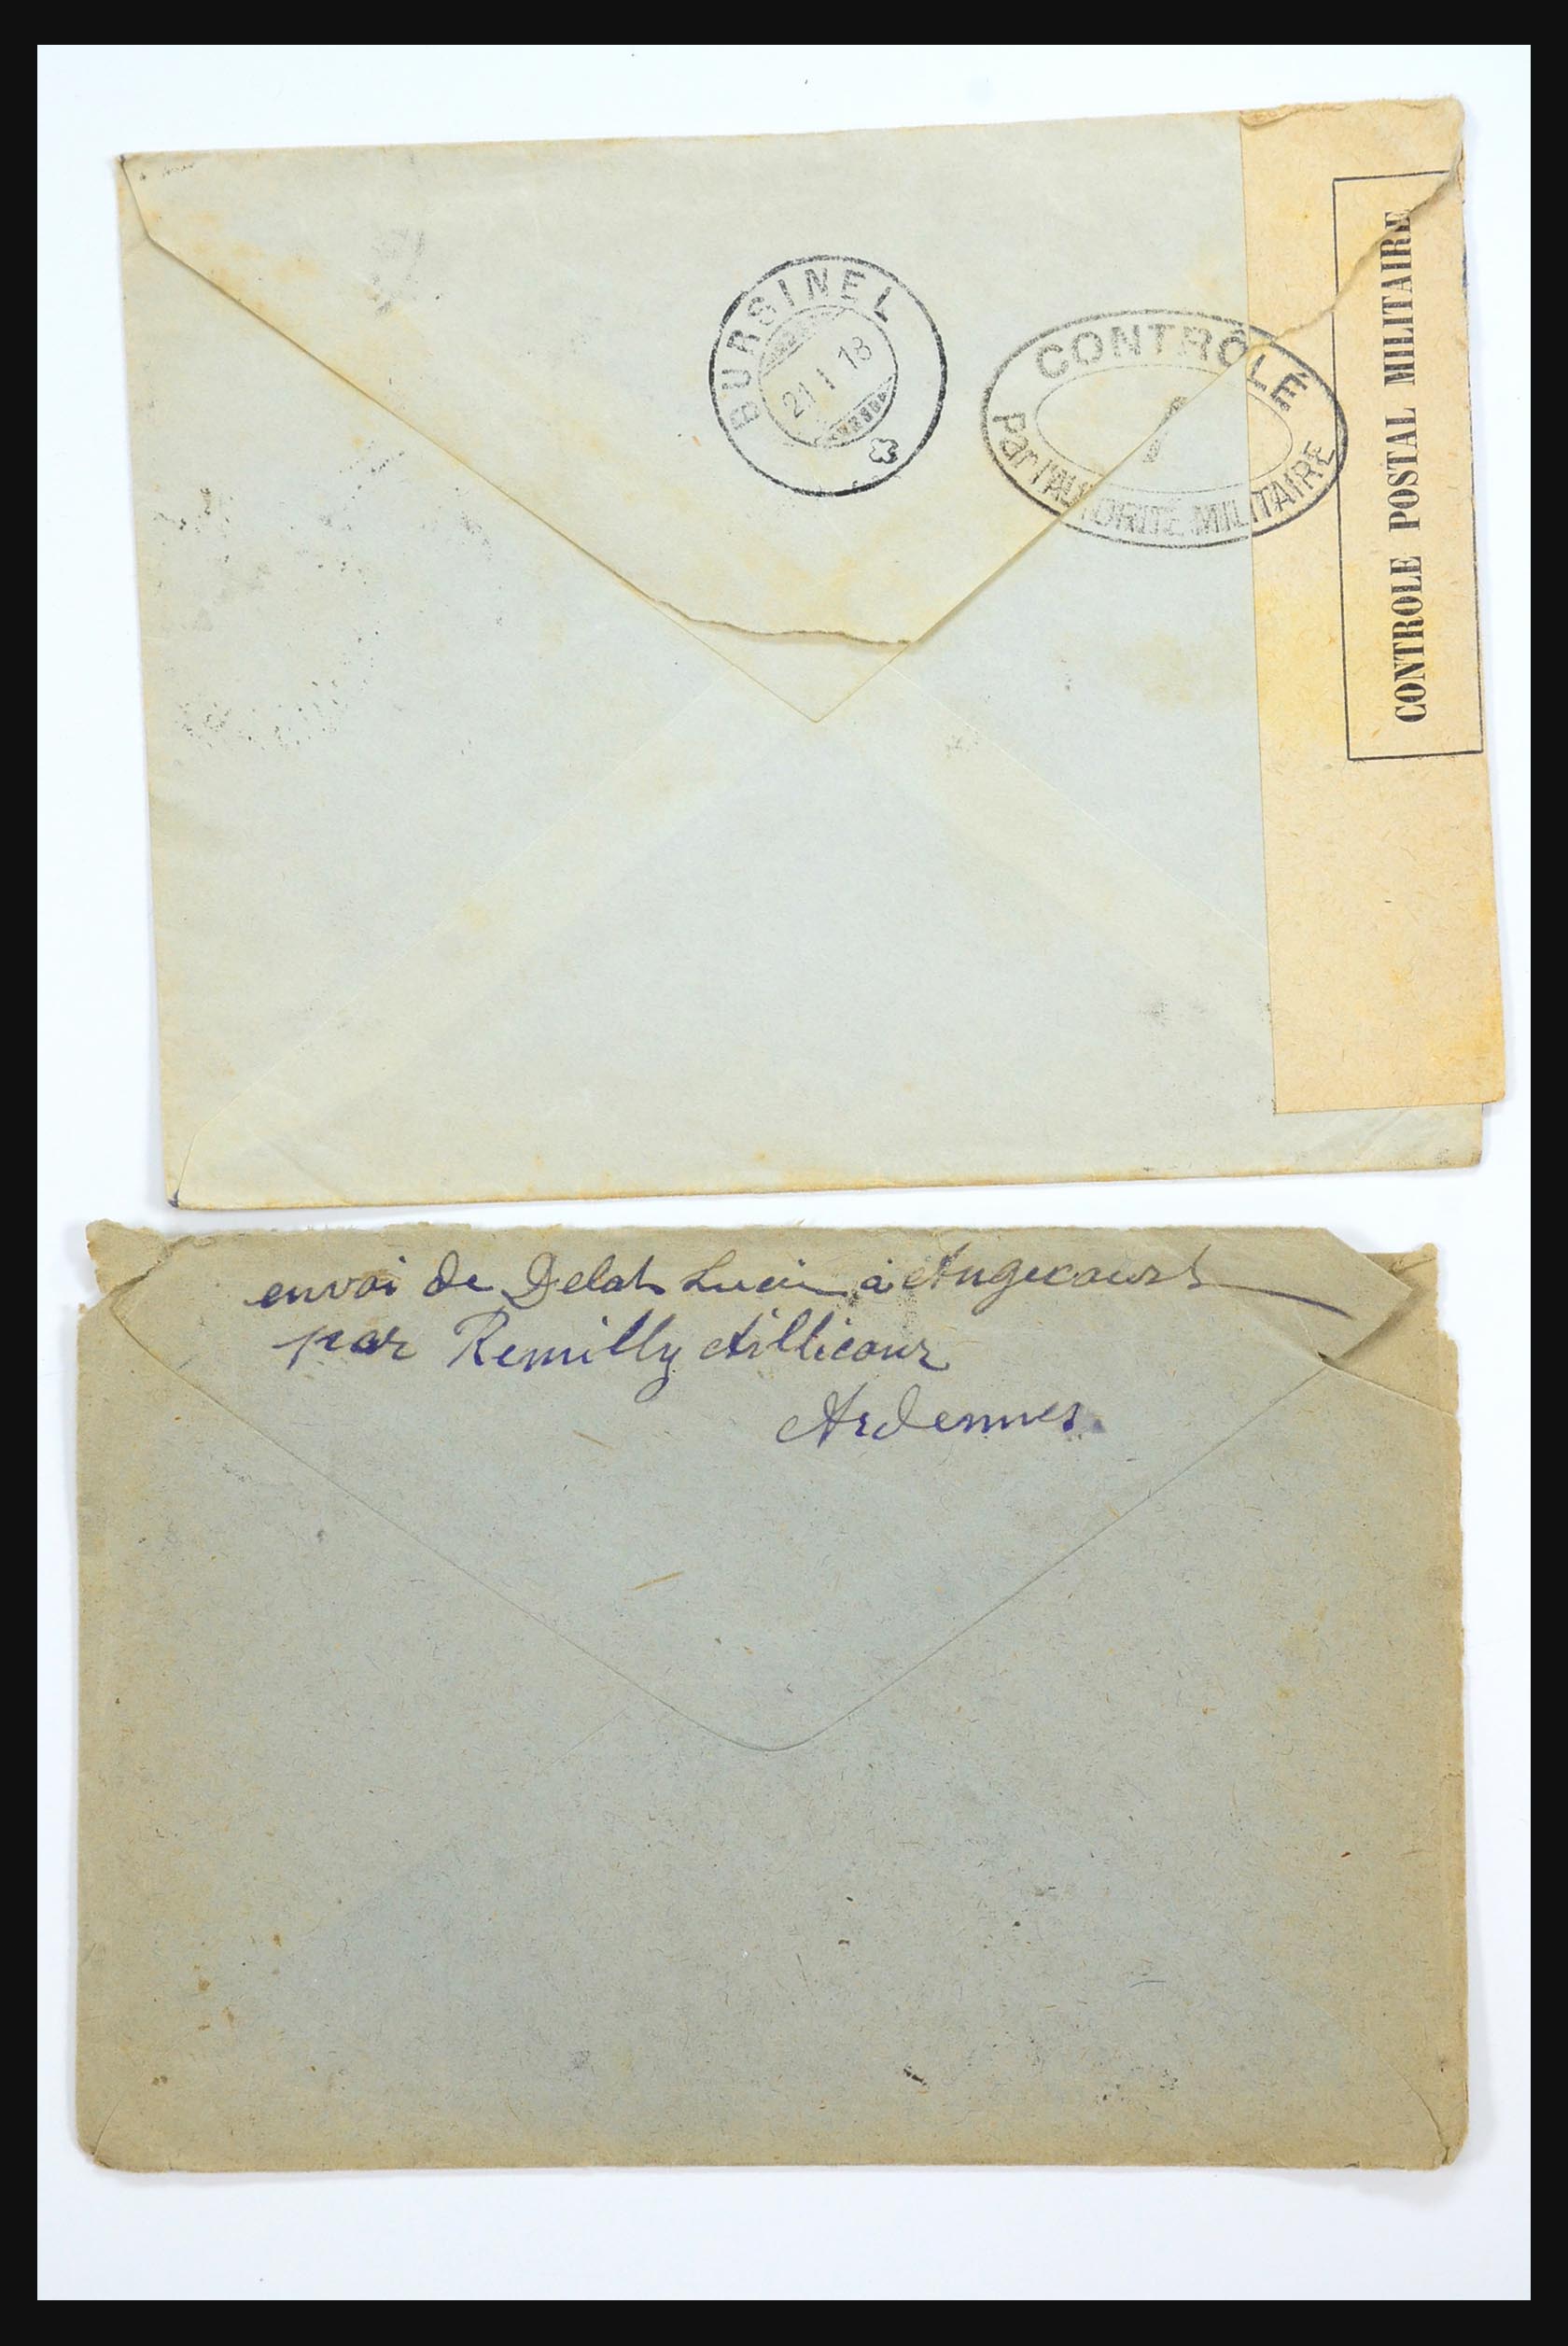 BURSINEL
21 1 18
CONTRÔLE
par l'AUTORITÉ MILITAIRE
CONTROLE POSTAL MILITAIRE
envoi de Delat Lucien à Angecourt
par Remilly Aillicour
Ardennes.